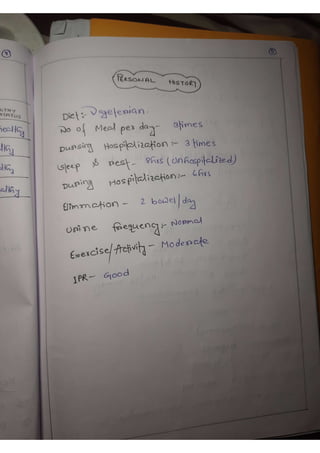 PERSONAL HISTORY
Diet:- Vegetenian.
No of Meal per day-
During Hospitalization:- 3 times
Sleep & Rest- 8hrs (Unhospitalized)
During Hospitalization:- 6hrs
Elimination - 2 bowel/day
Urine frequency:- Normal
Exercise/Activity- Moderate
IPR- Good